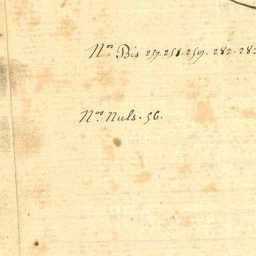 Nos Bis 257. 258. 259. 282. 28
Nos Nuls. 56.